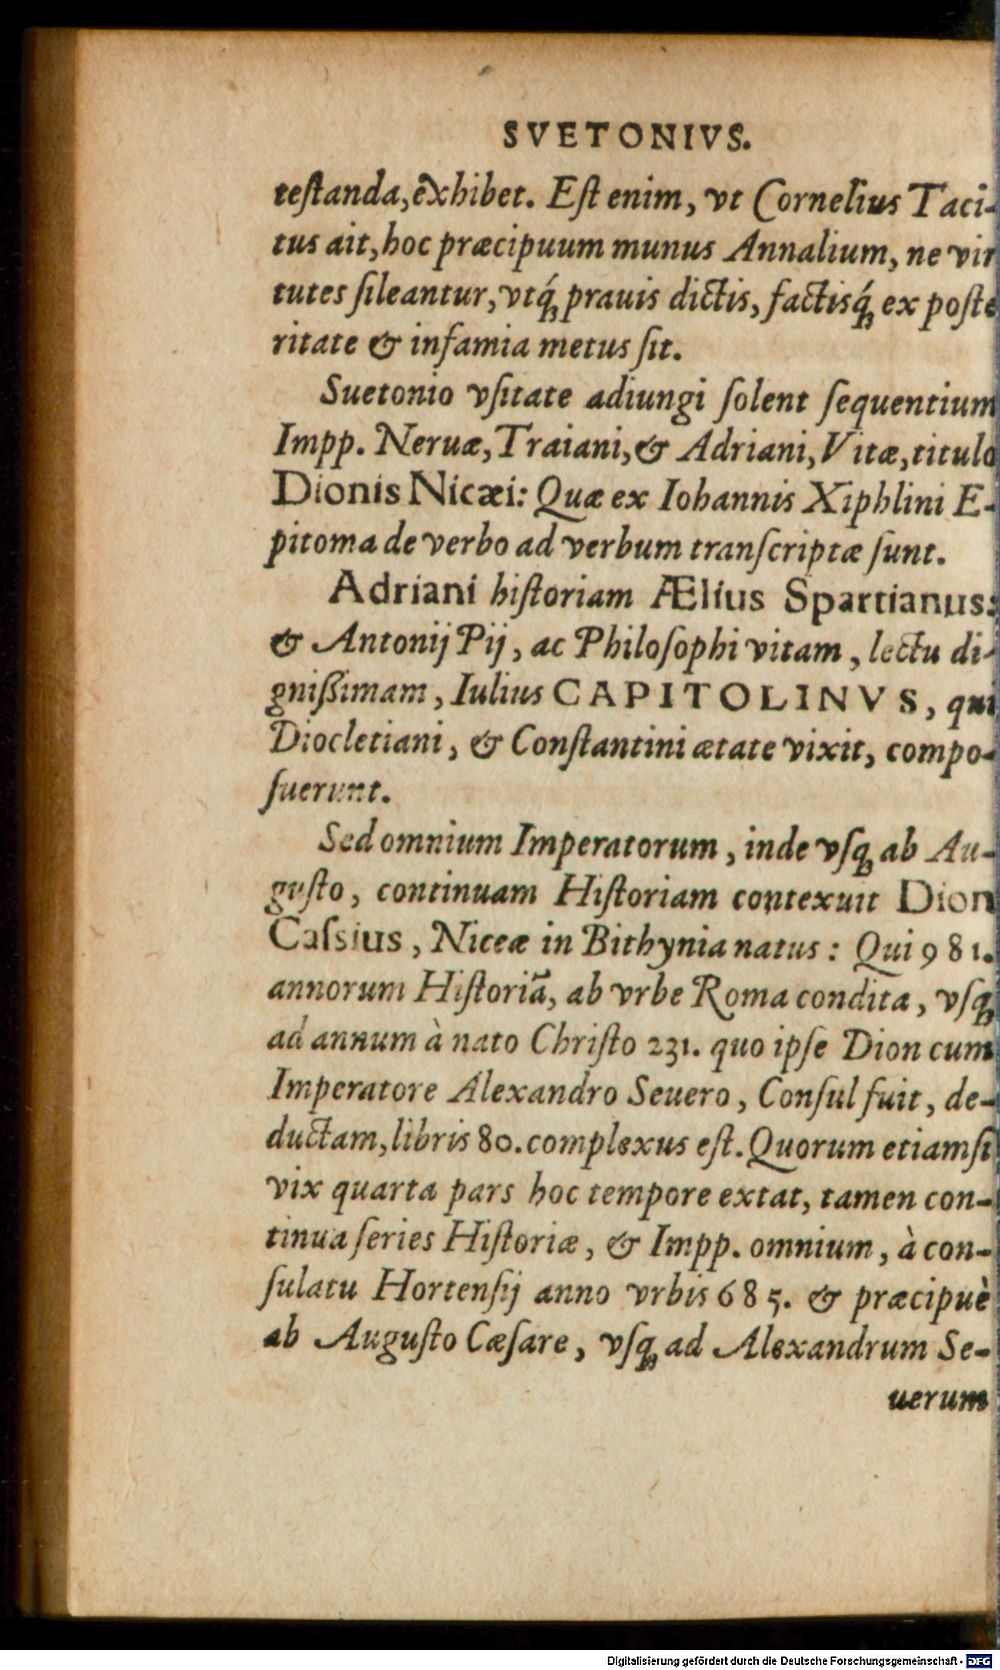 SVETONIVS.
testanda, exhibet. Est enim, vt Cornelius Taci-
tus ait, hoc præcipuum munus Annalium, ne vir
tutes sileantur, vtq́; prauis dictis, factisq́; ex poste
ritate & infamia metus sit.
Suetonio vsitate adiungi solent sequentium
Impp. Neruæ, Traiani, & Adriani, Vitæ, titulo
Dionis Nicæi: Quæ ex Iohannis Xiphlini E-
pitoma de verbo ad verbum transcriptæ sunt.
Adriani historiam Ælius Spartianus:
& Antonij Pij, ac Philosophi vitam, lectu di-
gnißimam, Iulius CAPITOLINVS, qui
Diocletiani, & Constantini ætate vixit, compo-
suerunt.
Sed omnium Imperatorum, inde vsq; ab Au-
gusto, continuam Historiam contexuit Dion
Cassius, Niceæ in Bithynia natus: Qui 981.
annorum Historiã, ab vrbe Roma condita, vsq;
ad annum à nato Christo 231. quo ipse Dion cum
Imperatore Alexandro Seuero, Consul fuit, de-
ductam, libris 80. complexus est. Quorum etiamsi
vix quarta pars hoc tempore extat, tamen con-
tinua series Historiæ, & Impp. omnium, à con-
sulatu Hortensij anno vrbis 685. & præcipuè
ab Augusto Cæsare, vsq; ad Alexandrum Se-
uerum
Digitalisierung gefördert durch die Deutsche Forschungsgemeinschaft - DFG